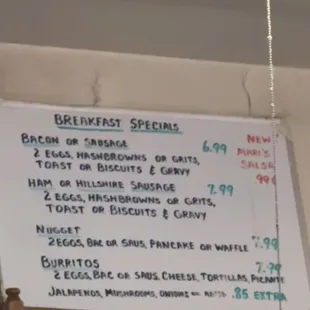 BREAKFAST SPECIALS
BACON OR SAUSAGE 6.99
2 EGGS, HASHBROWNS OR GRITS,
TOAST OR BISCUITS & GRAVY
NEW
MARI'S
SALSA
99¢
HAM OR HILLSHIRE SAUSAGE 7.99
2 EGGS, HASHBROWNS OR GRITS,
TOAST OR BISCUITS & GRAVY
NUGGET
2 EGGS, BAC OR SAUS, PANCAKE OR WAFFLE 7.99
BURRITOS 7.79
2 EGGS, BAC OR SAUS, CHEESE, TORTILLAS, PICANTE
JALAPENOS, MUSHROOMS, ONIONS .85 EXTRA